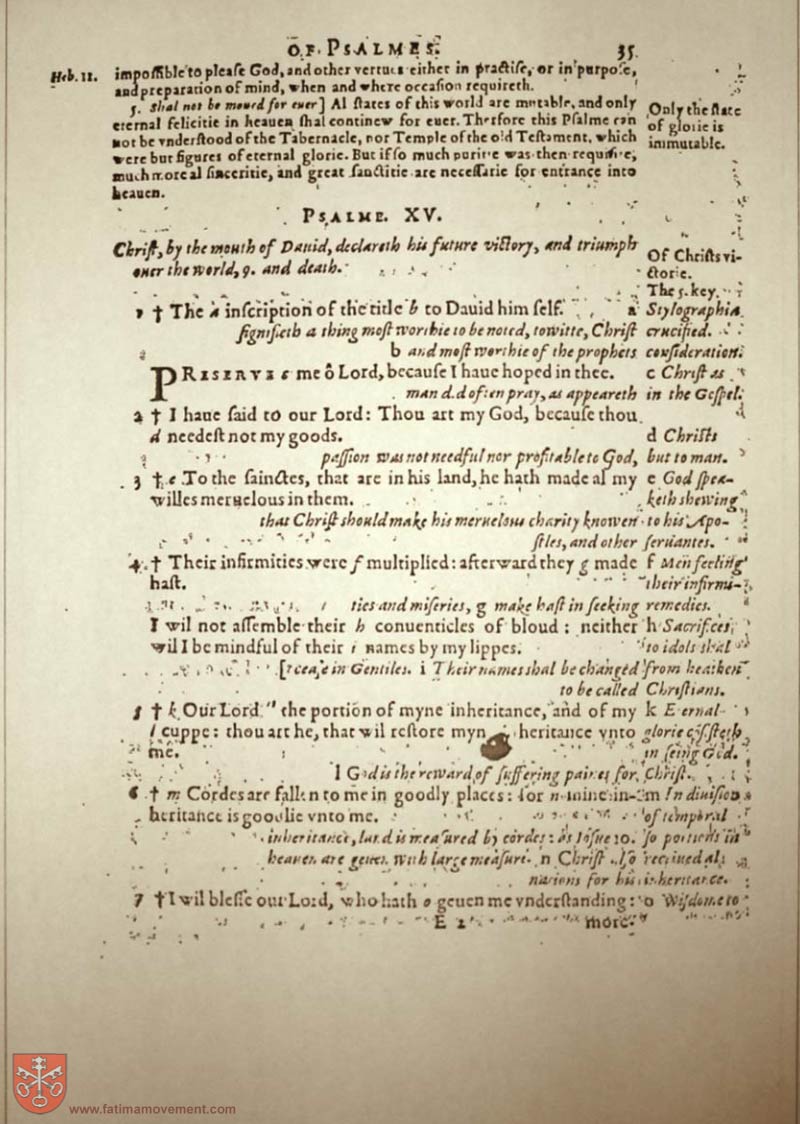 OF PSALMES. 35
Heb. 11. impoſſible to pleaſe God, and other vertues either in practiſe, or in purpoſe,
and preparation of mind, when and where occaſion requireth.
5. Shal not be moued for euer] Al ſtates of this world are mutable, and only
eternal felicitie in heauen ſhal continew for euer. Therfore this Pſalme can
not be vnderſtood of the Tabernacle, nor Temple of the old Teſtament, which
were but figures of eternal glorie. But if ſo much puritie was then requiſite,
much more al ſinceritie, and great ſanctitie are neceſſarie for entrance into
heauen.
Only the ſtate
of glorie is
immutable.
PSALME. XV.
Chriſt, by the mouth of Dauid, declareth his future victory, and triumph
ouer the world, 9. and death.
Of Chriſts vi-
ctorie.
The 5. key.
1 † The a inſcription of the title b to Dauid him ſelf. a Stylographia
ſignifieth a thing moſt worthie to be noted, towitte, Chriſt crucified.
b and moſt worthie of the prophets conſideration.
PRESERVE c me ô Lord, becauſe I haue hoped in thee. c Chriſt as
man did often pray, as appeareth in the Goſpel.
2 † I haue ſaid to our Lord: Thou art my God, becauſe thou
d needeſt not my goods. d Chriſts
paſſion was not needful nor profitable to God, but to man.
3 † e To the ſainctes, that are in his land, he hath made al my e God ſpea-
willes meruelous in them. keth shewing
that Chriſt should make his meruelous charity knowen to his Apo-
ſtles, and other ſeruantes.
4 † Their infirmities were f multiplied: afterward they g made f Men feeling
haſt. their infirmi-
ties and miſeries, g make haſt in ſeeking remedies.
I wil not aſſemble their h conuenticles of bloud: neither h Sacrifices
wil I be mindful of their i names by my lippes. to idols shal
ceaſe in Gentiles. i Their names shal be changed from heathen
to be called Chriſtians.
5 † k Our Lord the portion of myne inheritance, and of my k Eternal
l cuppe: thou art he, that wil reſtore myn heritance vnto glorie cōſiſteth
me. in ſeing God.
l God is the reward of ſuffering paines for Chriſt.
6 † m Cordes are fallen to me in goodly places: for n mine in- m In diuiſion
heritance is goodlie vnto me. of temporal
inheritance, land is meaſured by cordes: as Ioſue 10. ſo portions in
heauen are geuen with large meaſure. n Chriſt alſo receiued al
nations for his inheritance.
7 † I wil bleſſe our Lord, who hath o geuen me vnderſtanding: o Wiſdome to
E 2 more
www.fatimamovement.com